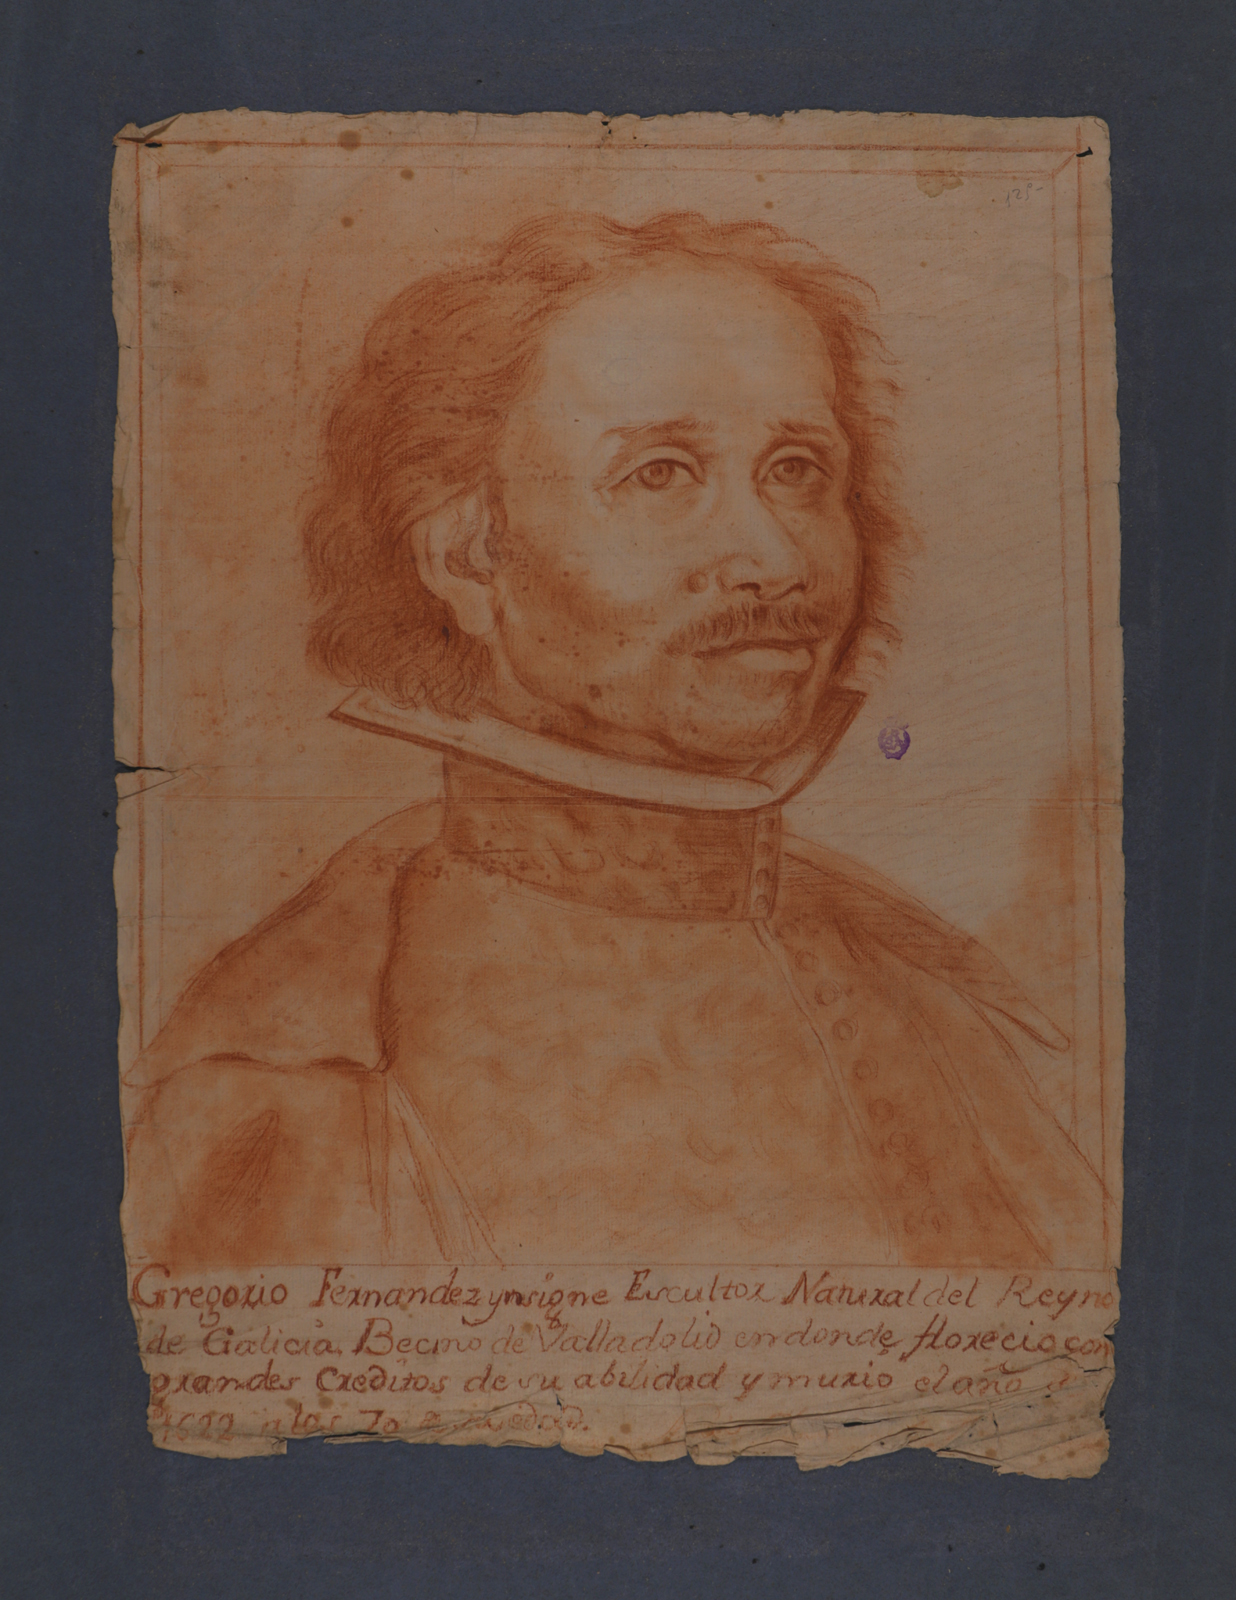 125
Gregorio Fernandez ynsigne Escultor Natural del Reyno
de Galicia, Becino de Valladolid en donde florecio con
grandes Creditos de su abilidad y murio el año d
1622 a los 70 edad.